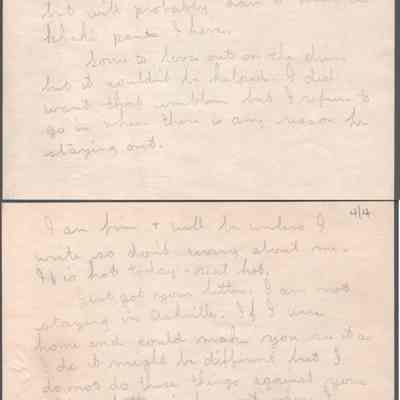 but will probably
khaki pants I have.
Sorry to lose out on the
but it couldn't be helped. I did
want that but I refuse to
go in when there is any reason for
staying out.
4/4
I am fine + will be unless I
write so don't worry about me.
It is hot today - real hot.
Just got your letter. I am not
staying in Asheville. If I was
home and could make you see it as
I do it might be different but I
do not do these things against your